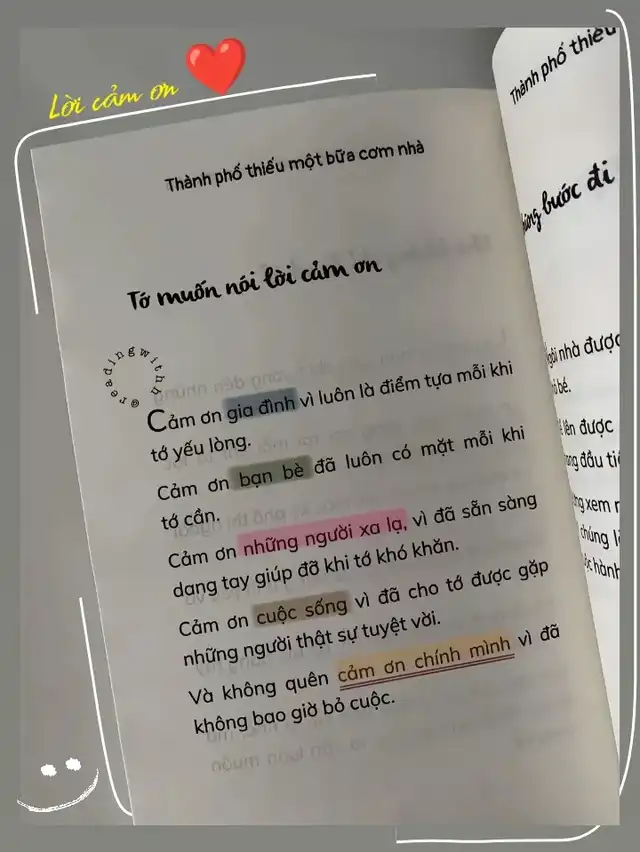 Lời cảm ơn
Thành phố thiếu một bữa cơm nhà
Tớ muốn nói lời cảm ơn
@readingwithh
Cảm ơn gia đình vì luôn là điểm tựa mỗi khi
tớ yếu lòng.
Cảm ơn bạn bè đã luôn có mặt mỗi khi
tớ cần.
Cảm ơn những người xa lạ, vì đã sẵn sàng
dang tay giúp đỡ khi tớ khó khăn.
Cảm ơn cuộc sống vì đã cho tớ được gặp
những người thật sự tuyệt vời.
Và không quên cảm ơn chính mình vì đã
không bao giờ bỏ cuộc.
Thành phố thiếu
bước đi
nhà được
bé.
lên được
đầu
xem
chúng